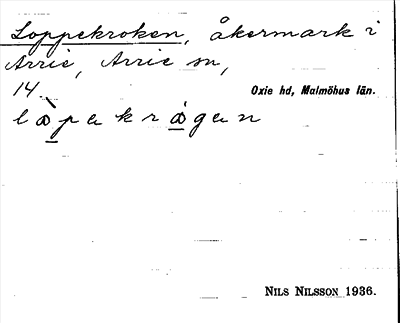 Loppekroken, åkermark i
Arrie, Arrie sn,
14. Oxie hd, Malmöhus län.
lɑ̀pekrɑgen
NILS NILSSON 1936.